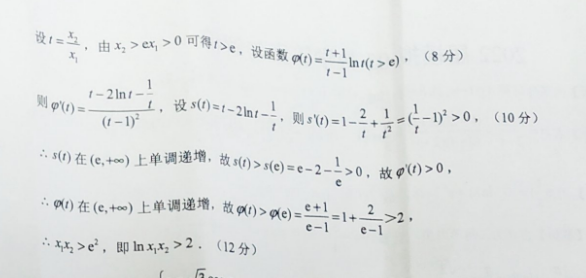 设t=x₂/x₁，由x₂>ex₁>0可得t>e，设函数φ(t)=(t+1)/(t-1) ln t(t>e)，（8分）
则φ'(t)=(t-2ln t-1/t)/(t-1)²，设s(t)=t-2ln t-1/t，则s'(t)=1-2/t+1/t²=(1/t-1)²>0，（10分）
∴s(t)在(e,+∞)上单调递增，故s(t)>s(e)=e-2-1/e>0，故φ'(t)>0，
∴φ(t)在(e,+∞)上单调递增，故φ(t)>φ(e)=(e+1)/(e-1)=1+2/(e-1)>2，
∴x₁x₂>e²，即ln x₁x₂>2．（12分）